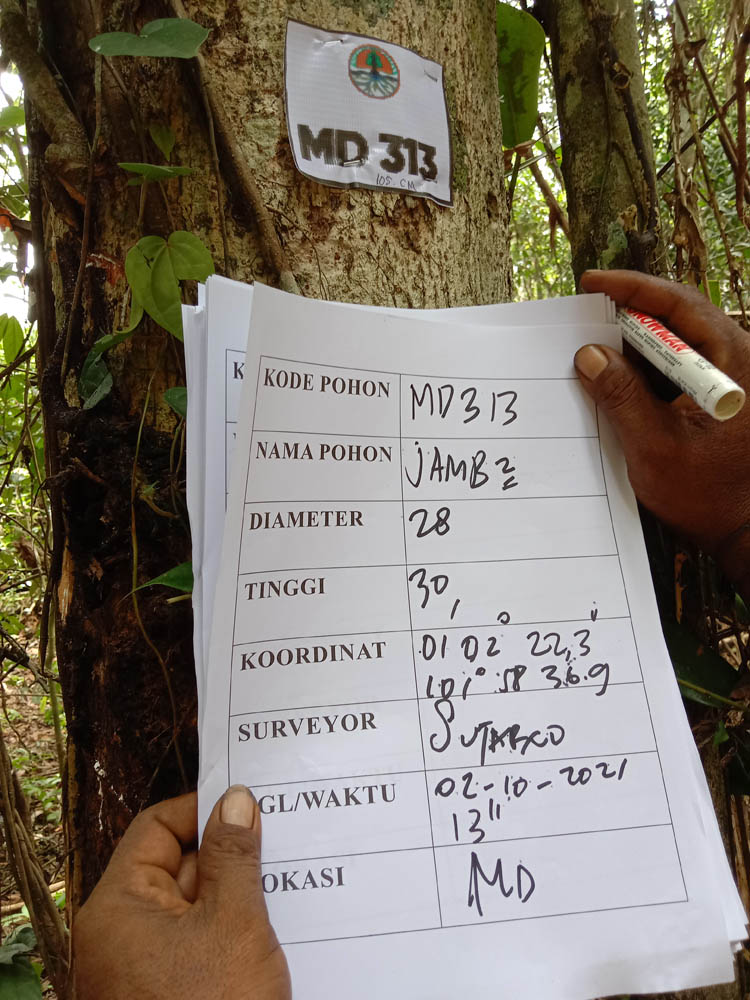 MD 313
105 CM
KODE POHON MD313
NAMA POHON JAMB2
DIAMETER 28
TINGGI 30,
KOORDINAT 01 02 22,3
101° 58 36.9
SURVEYOR
GL/WAKTU 02-10-2021
13"
OKASI MD
SNOWMAN
K